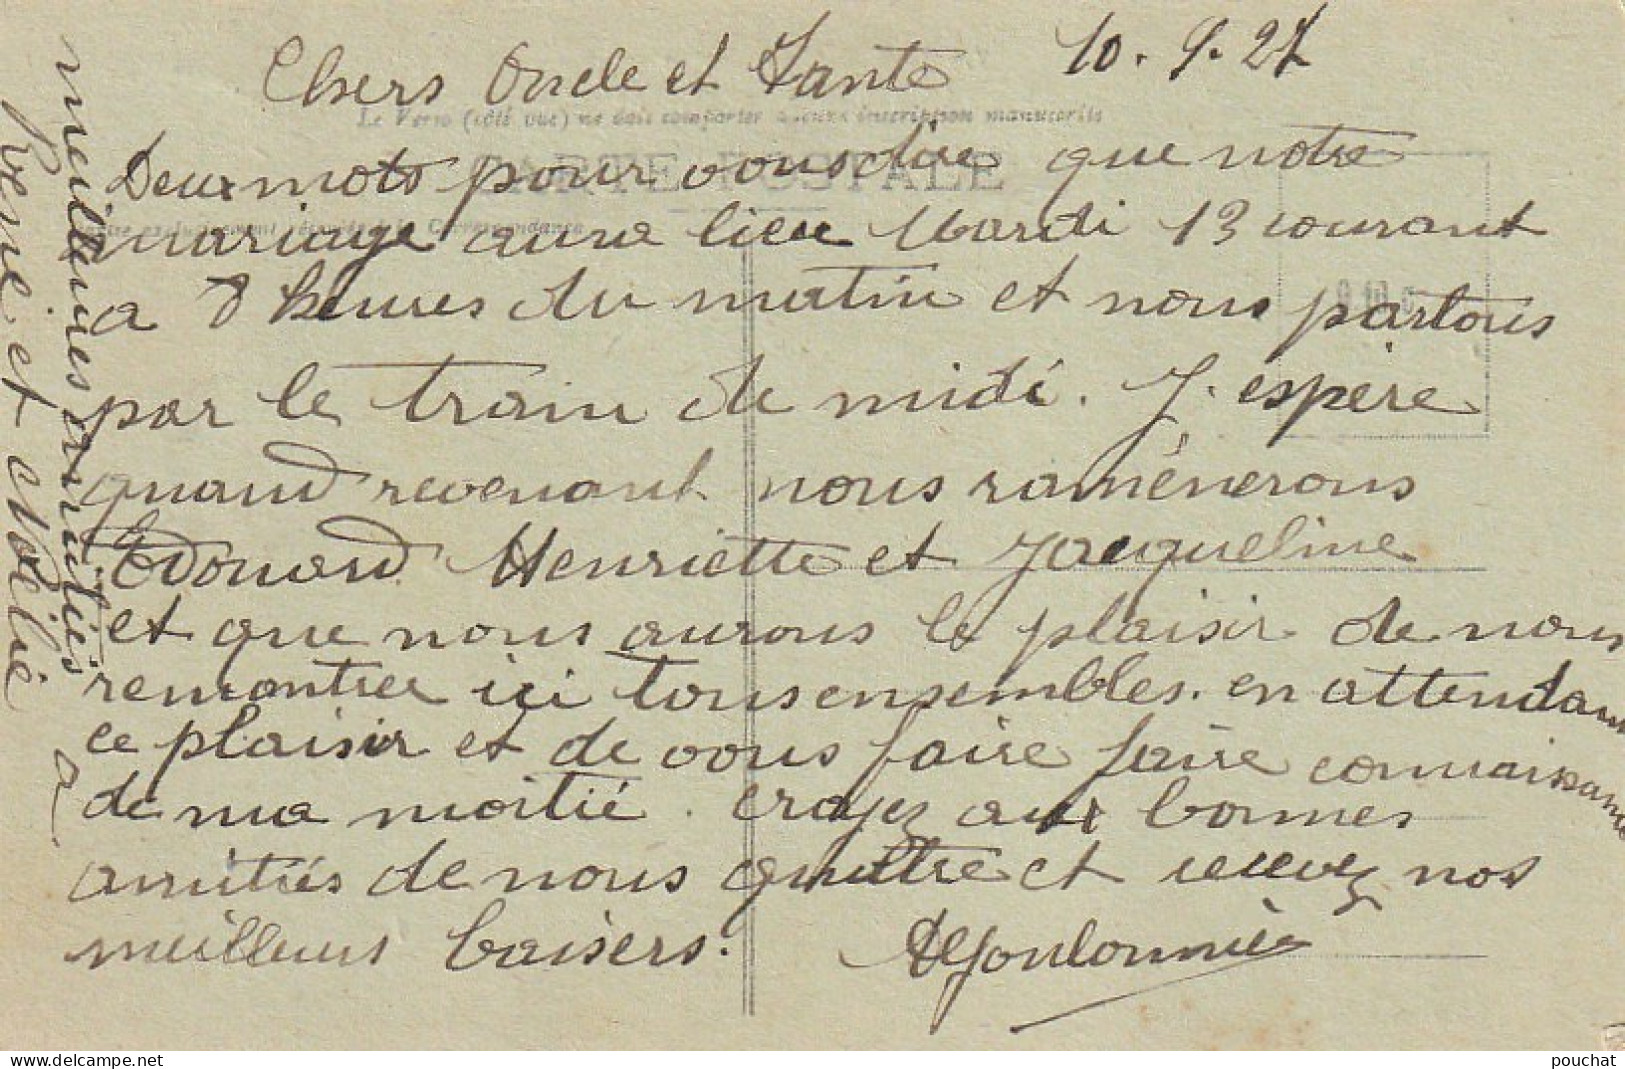 Chers Oncle et Tante 10.9.27
Le Verso (côté vue) ne doit comporter aucune inscription manuscrite
CARTE POSTALE
Deux mots pour vous dire que notre
exclusivement réservé à la Correspondance
mariage aura lieu Mardi 13 courant
a 8 heures du matin et nous partons
par le train de midi. J. espère
quand revenant nous ramènerons
Edouard Henriette et Jacqueline
et que nous aurons le plaisir de nous
remontrer ici tous ensembles. en attendant
ce plaisir et de vous faire faire connaissance
de ma moitié. croyez aux bonnes
amitiés de nous quattre et recevez nos
meilleurs baisers.
meilleures amitiés a
René et Nélie
pouchat